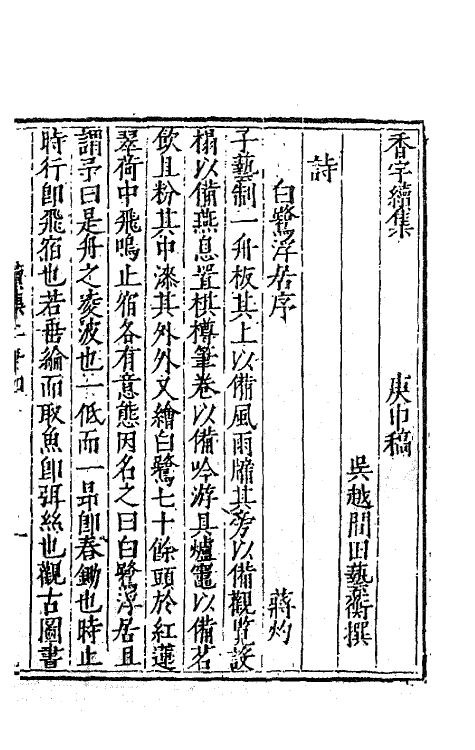 香宇續集　庚申稿
吳越間田藝蘅撰
詩
白鷺浮居序　蔣灼
子藝制一舟板其上以備風雨牖其旁以備觀覽設
榻以備燕息置棋樽筆卷以備吟游具爐竈以備茗
飲且粉其中漆其外外又繪白鷺七十餘頭於紅蓮
翠荷中飛鳴止宿各有意態因名之曰白鷺浮居且
謂予曰是舟之凌波也一低而一昂即舂鋤也時止
時行即飛宿也若垂綸而取魚即弭絲也觀古圖書
續集二十四
一